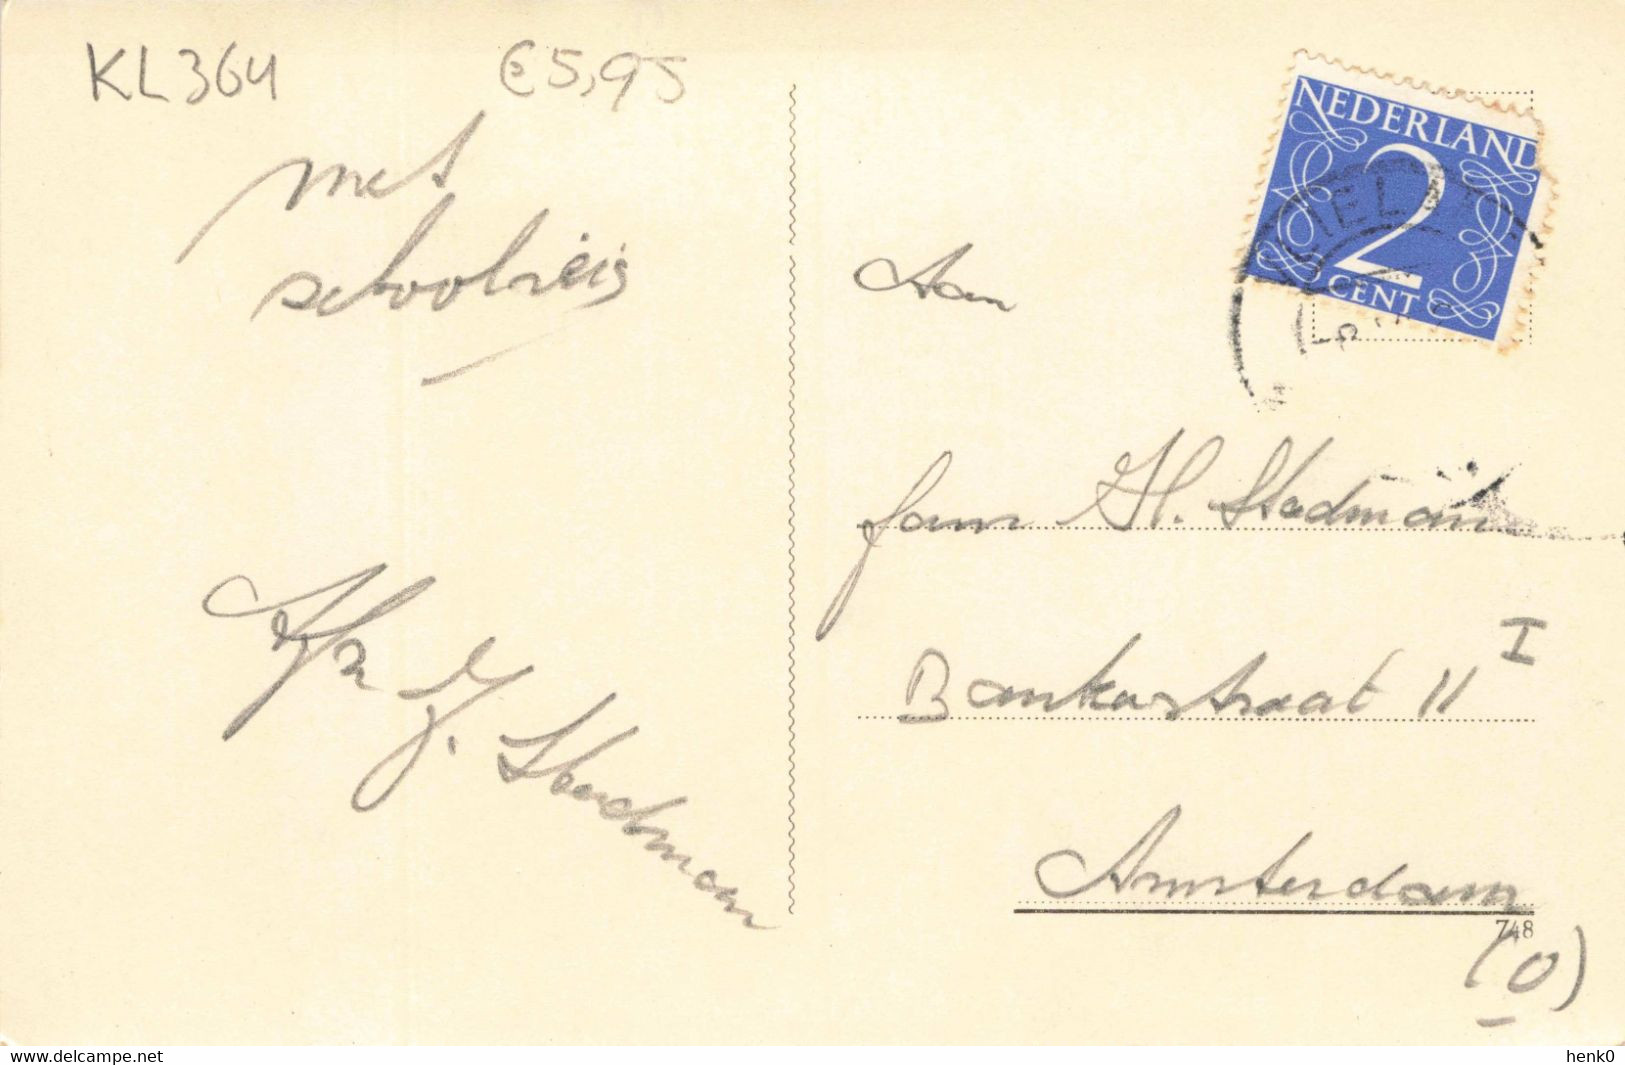 KL364 €5,95
met
schoolreis
Afz J. Stadman
NEDERLAND
2
CENT
Aan
fam H. Stadman
Bankastraat 11 I
Amsterdam
748
(O)
www.delcampe.net
henk0